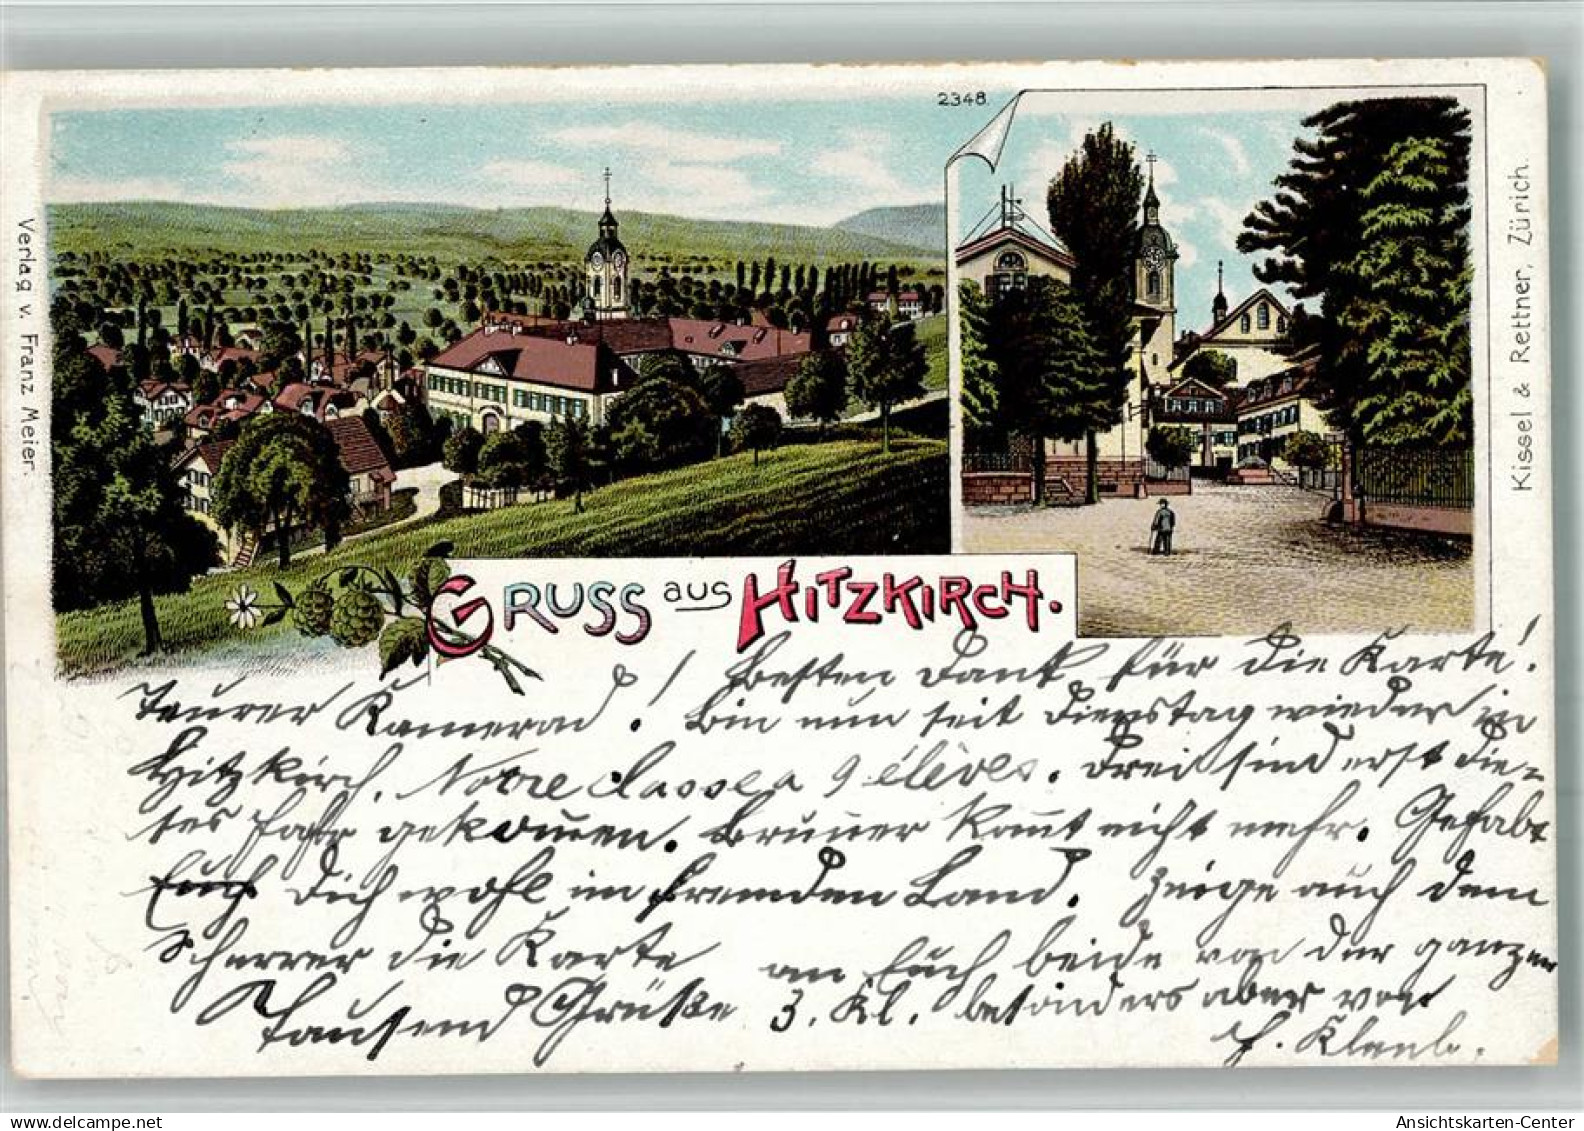 2348.
Verlag v. Franz Meier.
Kissel & Rettner, Zürich.
GRUSS aus HITZKIRCH.
Teurer Kamerad! Besten Dank für die Karte!
Bin nun seit Dienstag wieder in
Hitzkirch. Notre classe a 9 élèves. Drei sind erst die-
ses Jahr gekommen. Brunner kommt nicht mehr. Gehabt
Euch Dich wohl im fremden Land. Zeige auch dem
Scherrer die Karte
Tausend Grüße an Euch beide von der ganzen
3. Kl. besonders aber von
www.delcampe.net
Ansichtskarten-Center